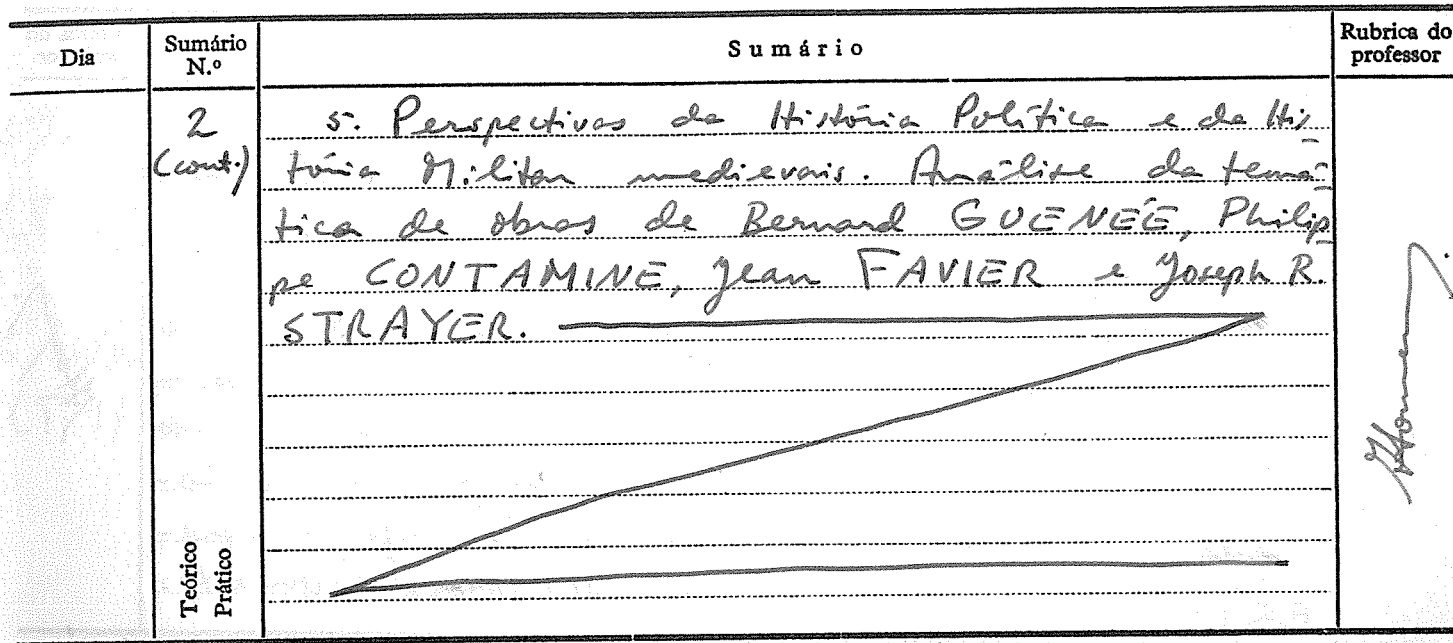 Dia
Sumário N.º
Sumário
Rubrica do professor
2 (cont.)
5. Perspectivas da História Política e da His
tória Militar medievais. Análise da temá
tica de obras de Bernard GUENÉE, Philip
pe CONTAMINE, Jean FAVIER e Joseph R.
STRAYER.
Teórico
Prático
Homem